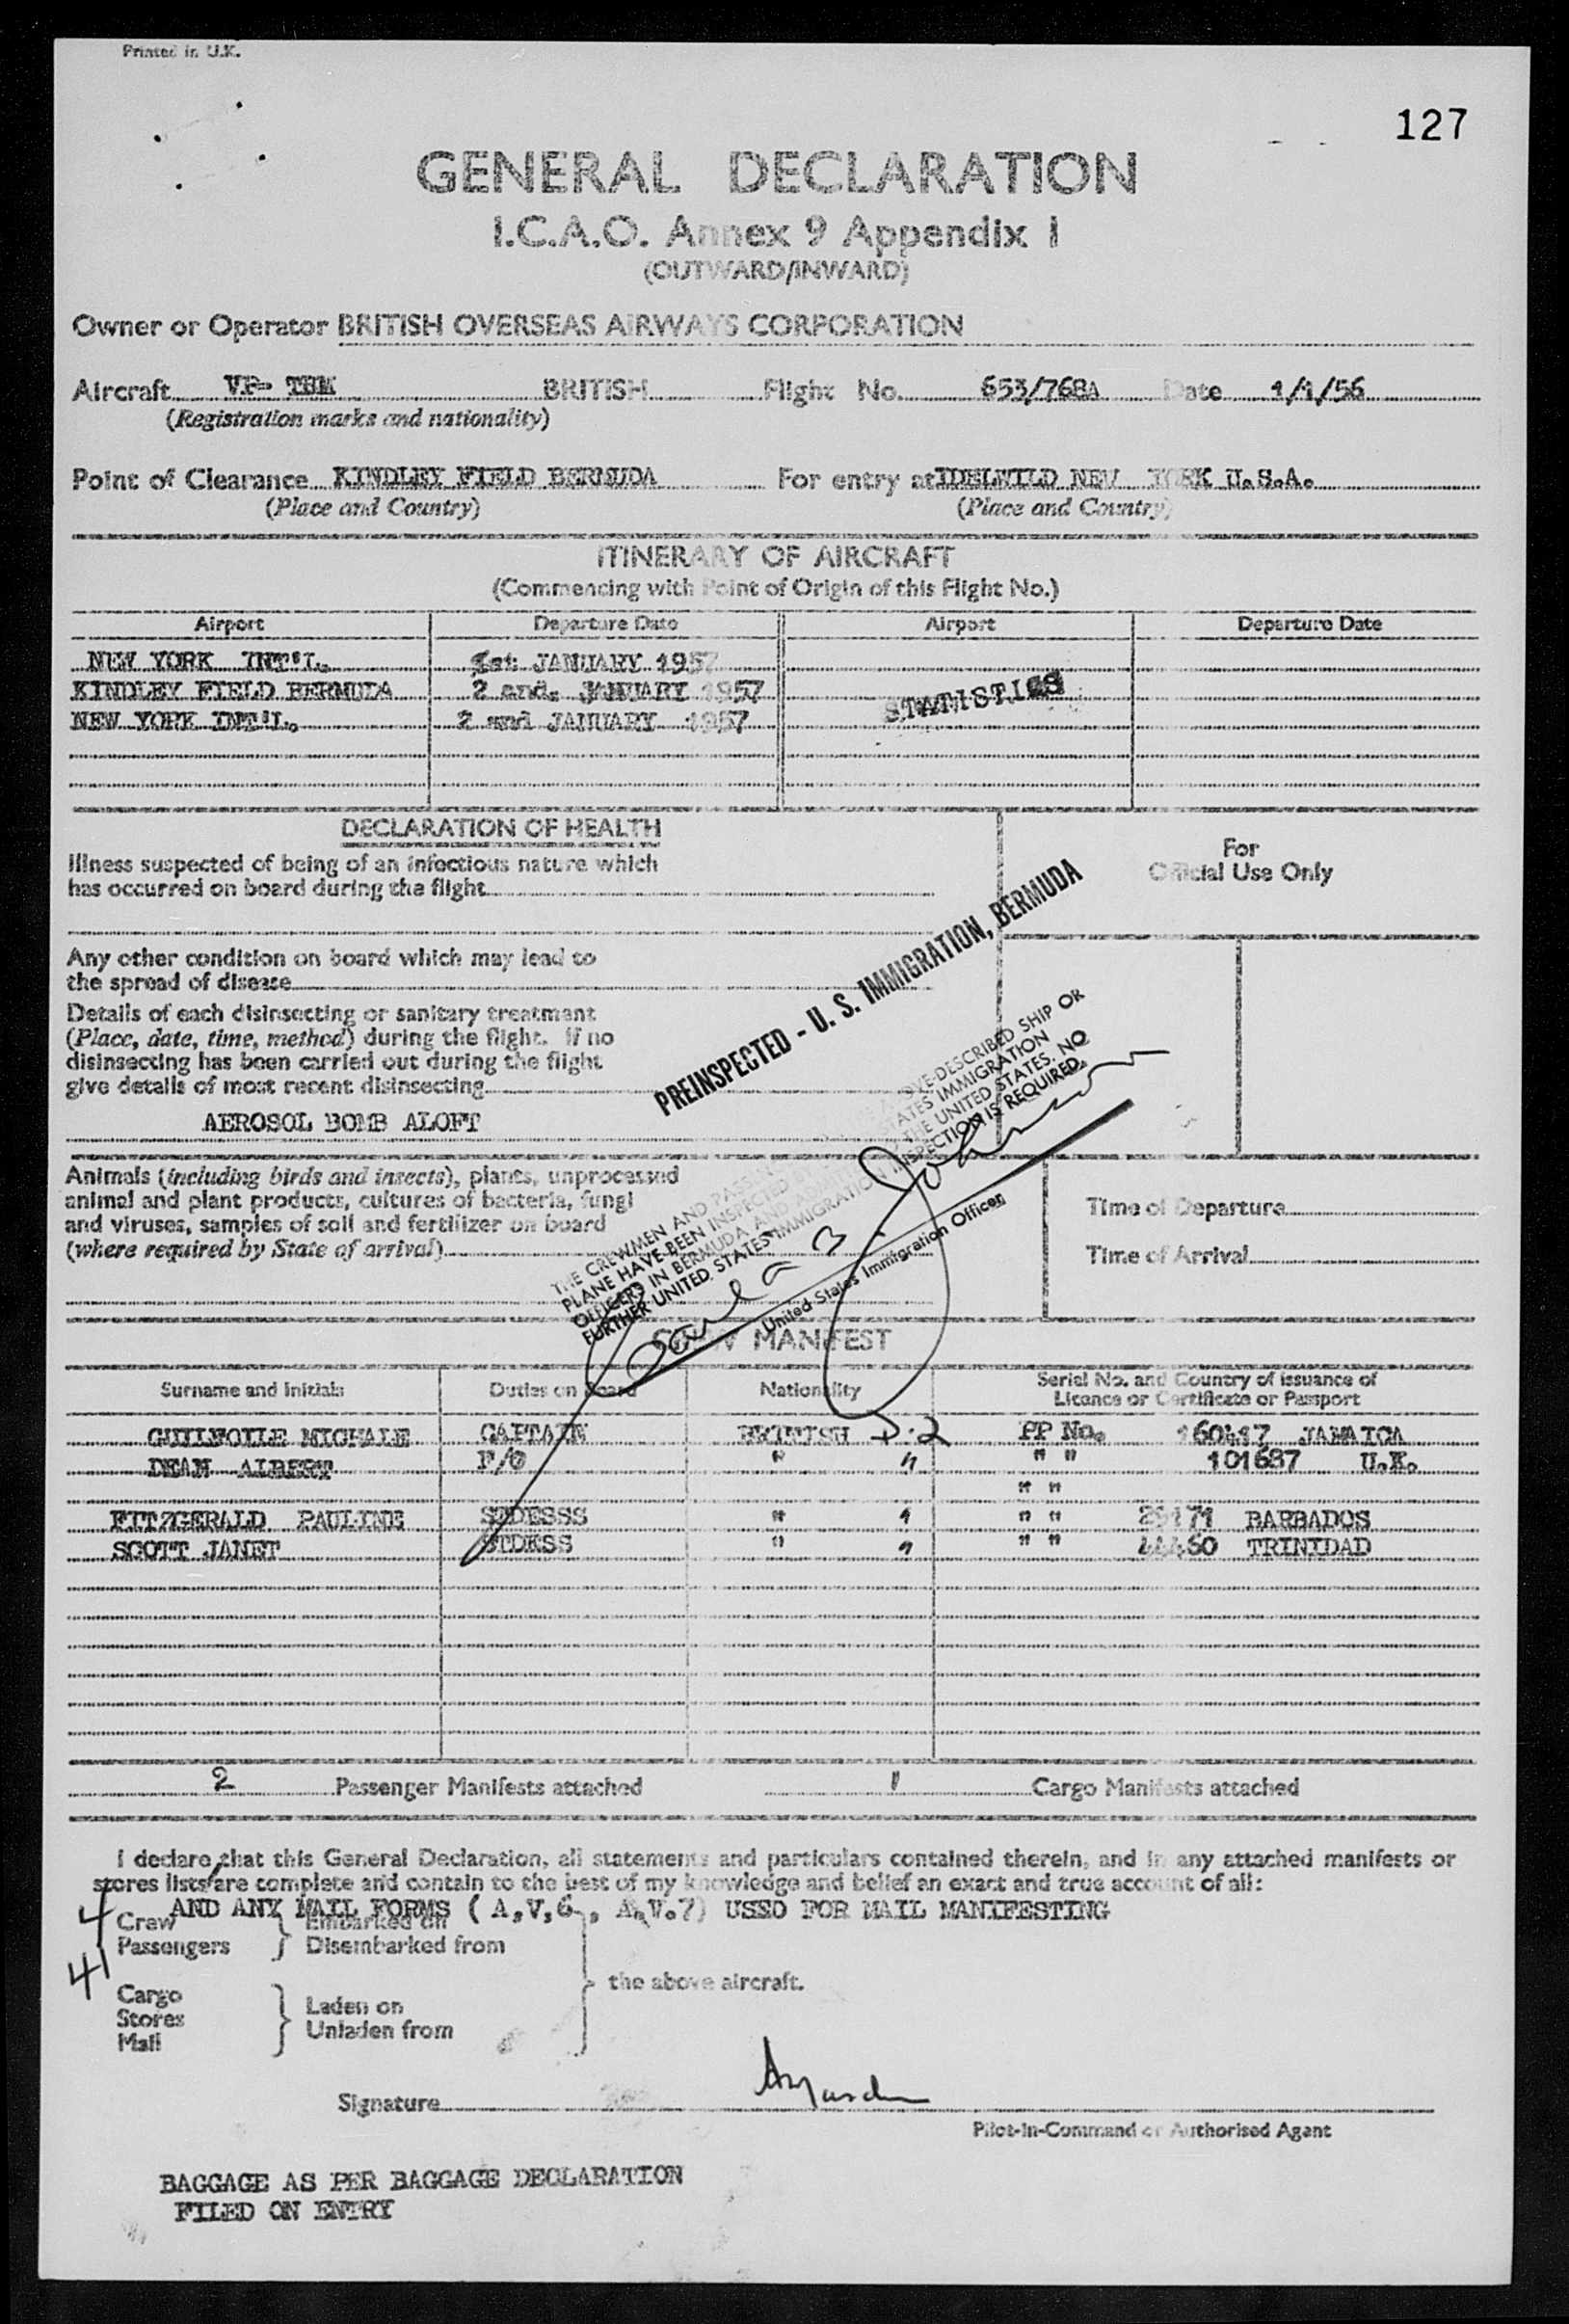 Printed in U.K.
127
GENERAL DECLARATION
I.C.A.O. Annex 9 Appendix I
(OUTWARD/INWARD)
Owner or Operator BRITISH OVERSEAS AIRWAYS CORPORATION
Aircraft VP- TBM BRITISH Flight No. 653/768A Date 1/1/56
(Registration marks and nationality)
Point of Clearance KINDLEY FIELD BERMUDA For entry at IDELWILD NEW YORK U.S.A.
(Place and Country) (Place and Country)
ITINERARY OF AIRCRAFT
(Commencing with Point of Origin of this Flight No.)
Airport Departure Date Airport Departure Date
NEW YORK INT'L. 1st JANUARY 1957
KINDLEY FIELD BERMUDA 2 and. JANUARY 1957
NEW YORK INT'L. 2 and JANUARY 1957
STATISTICS
DECLARATION OF HEALTH
For
Official Use Only
Illness suspected of being of an infectious nature which
has occurred on board during the flight
Any other condition on board which may lead to
the spread of disease
Details of each disinsecting or sanitary treatment
(Place, date, time, method) during the flight. If no
disinsecting has been carried out during the flight
give details of most recent disinsecting
AEROSOL BOMB ALOFT
PREINSPECTED - U. S. IMMIGRATION, BERMUDA
THE CREWMEN AND PASSEN ABOVE-DESCRIBED SHIP OR
PLANE HAVE BEEN INSPECTED STATES IMMIGRATION
OFFICERS IN BERMUDA AND THE UNITED STATES. NO
FURTHER UNITED STATES IMMIGRATION INSPECTION IS REQUIRED.
Johnson
United States Immigration Officer
Animals (including birds and insects), plants, unprocessed
animal and plant products, cultures of bacteria, fungi
and viruses, samples of soil and fertilizer on board
(where required by State of arrival)
Time of Departure
Time of Arrival
CREW MANIFEST
Surname and Initials Duties on Board Nationality Serial No. and Country of issuance of
Licence or Certificate or Passport
GUILFOILE MICHALE CAPTAIN BRITISH D.2 PP No. 160417 JAMAICA
DEAN ALBERT F/O " " " " 101687 U.K.
" "
FITZGERALD PAULINE STDESSS " " " " BARBADOS
SCOTT JANET STDESS " " " " 44460 TRINIDAD
2 Passenger Manifests attached 1 Cargo Manifests attached
I declare that this General Declaration, all statements and particulars contained therein, and in any attached manifests or
stores lists/are complete and contain to the best of my knowledge and belief an exact and true account of all:
AND ANY MAIL FORMS ( A,V,6 , A.V.7) USSD FOR MAIL MANIFESTING
4 Crew Embarked on
41 Passengers Disembarked from
the above aircraft.
Cargo
Stores Laden on
Mail Unladen from
Signature
Pilot-in-Command or Authorised Agent
BAGGAGE AS PER BAGGAGE DECLARATION
FILED ON ENTRY